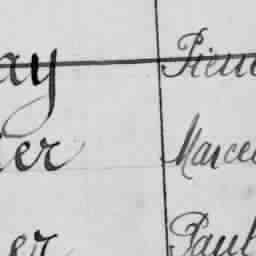 ay Pierre
ier Marcel
er Paul